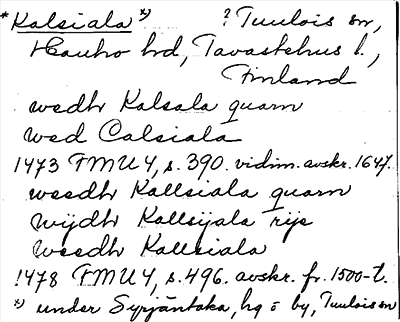 *Kalsiala *) ? Tuulois sn,
Hauho hd, Tavastehus l.,
Finland
wedhr Kalsala quarn
wed Calsiala
1473 FMU 4, s. 390. vidim. avskr. 1647.
weedhr Kallsiala quarn
wijdhr Kallsijala rije
weedhr Kallsiala
1478 FMU 4, s. 496. avskr. fr. 1500-t.
*) under Syrjäntaka, hg o by, Tuulois sn